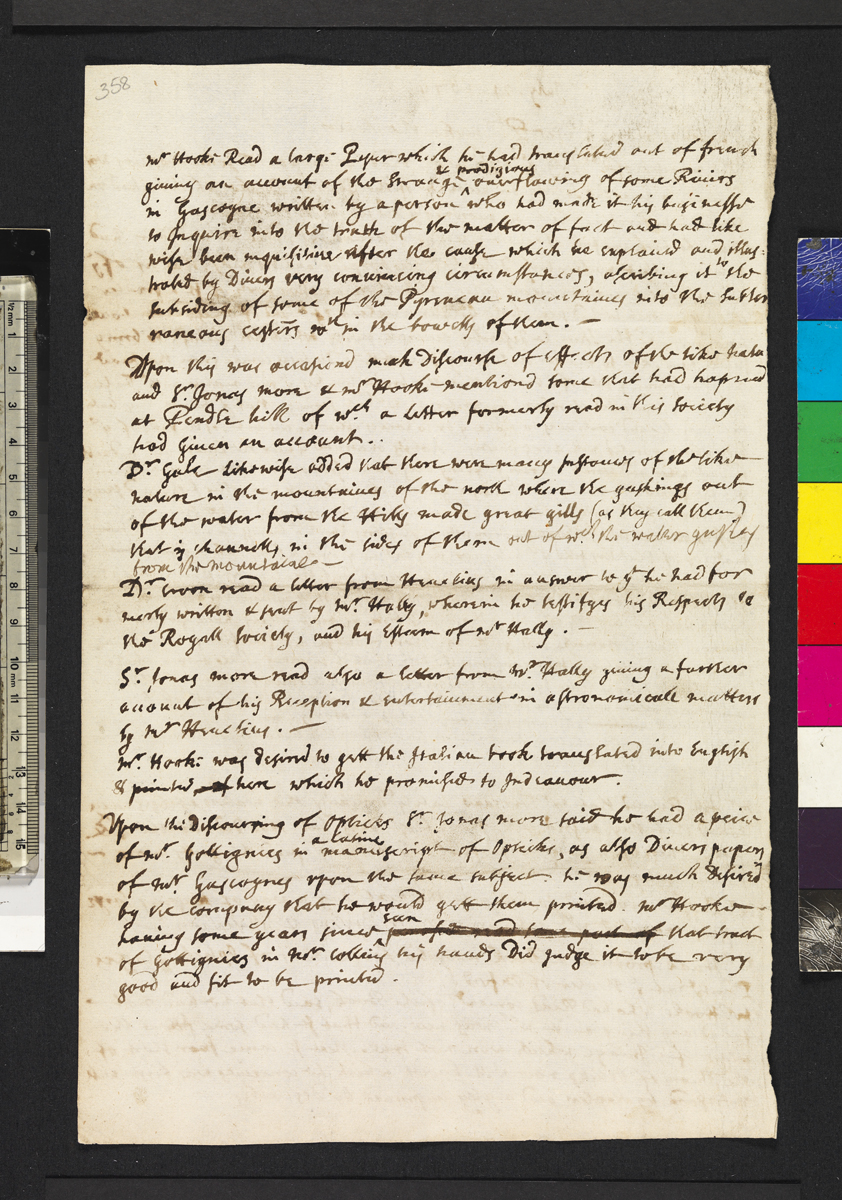 358
mr Hooke Read a large Paper which he had translated out of french
giving an account of the strange & prodigious overflowing of some Rivers
in Gascogne written by a person who had made it his businesse
to Inquire into the truth of the matter of fact and had like
wise been inquisitive after the cause which he explaind and illus-
trated by Divers very convincing circumstances, ascribing it to the
subsiding of some of the Pyrenean mountaines into the subter
raneous cesterns wth in the bowells of them. -
Upon this was occasiond much Discourse of effects of the like natu
and Sr. Jonas more & mr Hooke mentiond some that had hapned
at Pendle hill of wch a letter formerly read in this society
had given an account..
Dr. Gale likewise added that there were many Instances of the like
nature in the mountaines of the north where the gushings out
of the water from the Hills made great gills (as they call them)
that is channells in the sides of them out of wch the water gushes
from the mountaines -
Dr. Croon read a letter from Hevelius in answer to ye he had for
merly written & sent by mr. Hally, wherein he testifyes his Respects to
the Royall Society, and his Esteem of mr Hally. -
Sr. Jonas more read also a letter from Mr. Hally giving a further
account of his Reception & entertainment in astronomicall matters
by mr Hevelius. -
mr. Hooke was desired to gett the Italian book translated into English
& printed of here which he promised to Indeavour.
Upon the Discoursing of Opticks Sr. Jonas more said he had a peice
of mr. Gottignies in a latine manuscript of Opticks, as also Divers papers
of mr. Gascognes upon the same subject. he was much desired
by the company that he would gett them printed. mr Hooke
having some years since seen that tract
of Gottignies in mr. Collins his hands Did judge it to be very
good and fit to be printed.